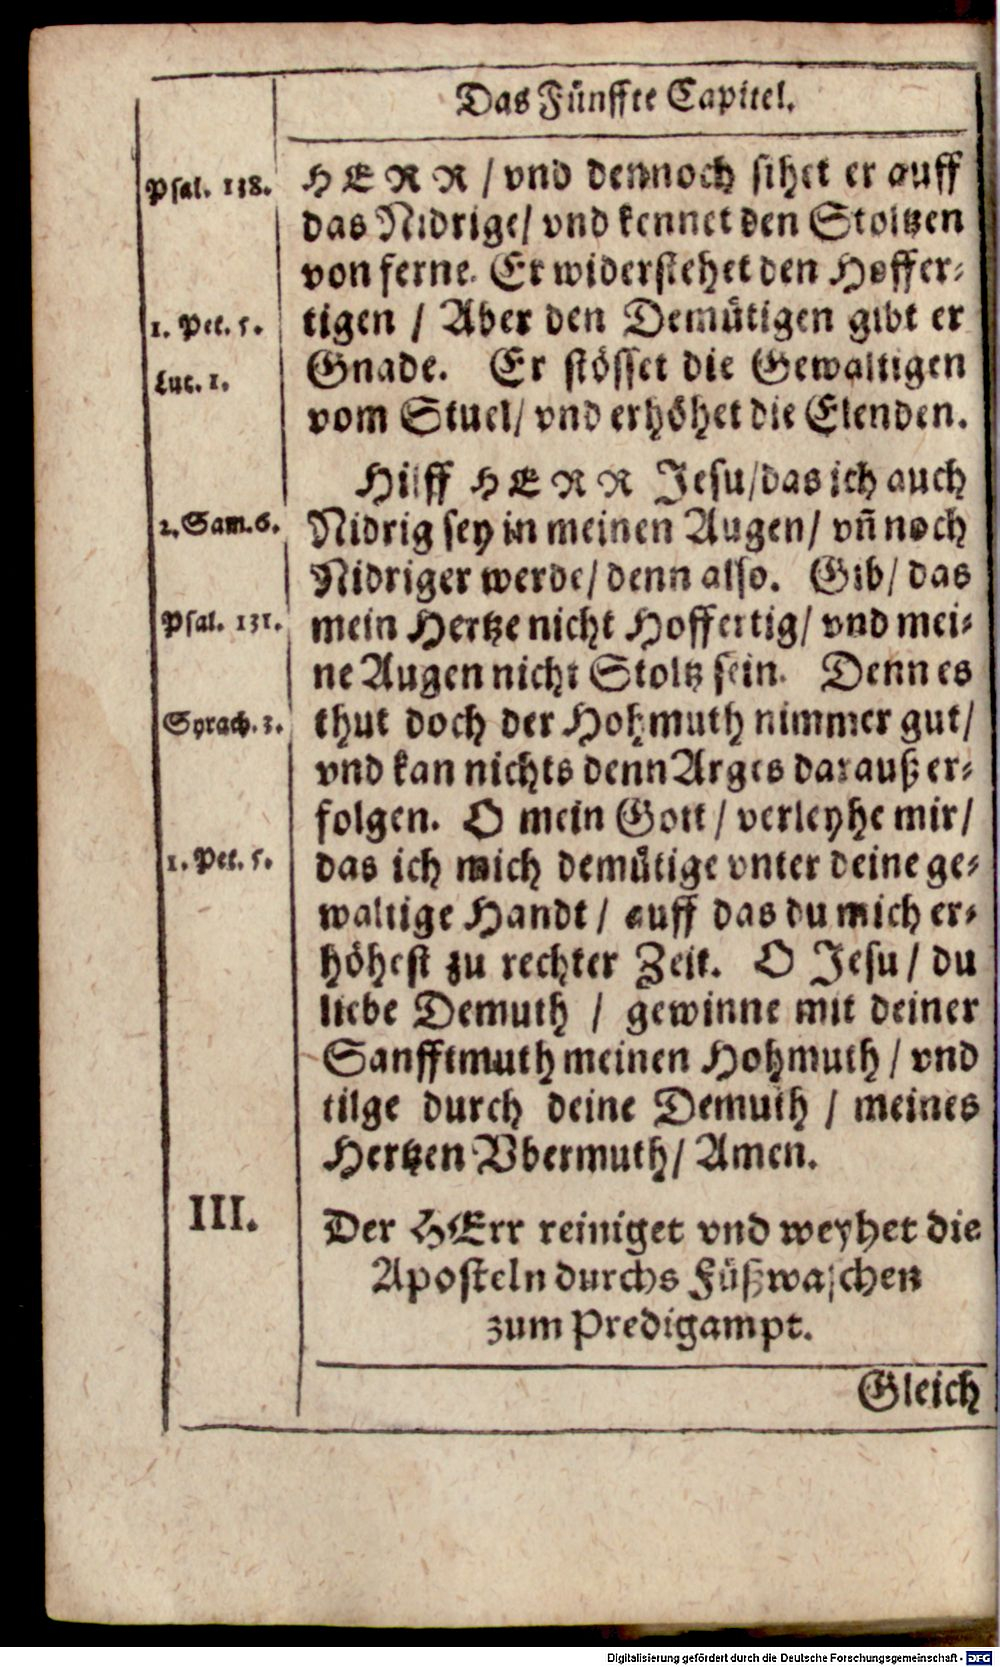 Das Fünffte Capitel.
Psal. 138.
HERR / vnd dennoch sihet er auff
das Nidrige/ vnd kennet den Stoltzen
von ferne. Er widerstehet den Hoffer-
1. Pet. 5.
tigen / Aber den Demütigen gibt er
Luc. 1.
Gnade. Er stösset die Gewaltigen
vom Stuel/ vnd erhöhet die Elenden.
Hilff HERR Jesu/das ich auch
2. Sam. 6.
Nidrig sey in meinen Augen/ vñ noch
Nidriger werde/ denn also. Gib/ das
Psal. 131.
mein Hertze nicht Hoffertig/ vnd mei-
ne Augen nicht Stoltz sein. Denn es
Syrach. 3.
thut doch der Hohmuth nimmer gut/
vnd kan nichts denn Arges darauß er-
folgen. O mein Gott / verleyhe mir/
1. Pet. 5.
das ich mich demütige vnter deine ge-
waltige Handt / auff das du mich er-
höhest zu rechter Zeit. O Jesu / du
liebe Demuth / gewinne mit deiner
Sanfftmuth meinen Hohmuth / vnd
tilge durch deine Demuth / meines
Hertzen Vbermuth/ Amen.
III.
Der HErr reiniget vnd weyhet die
Aposteln durchs Füßwaschen
zum Predigampt.
Gleich
Digitalisierung gefördert durch die Deutsche Forschungsgemeinschaft - DFG